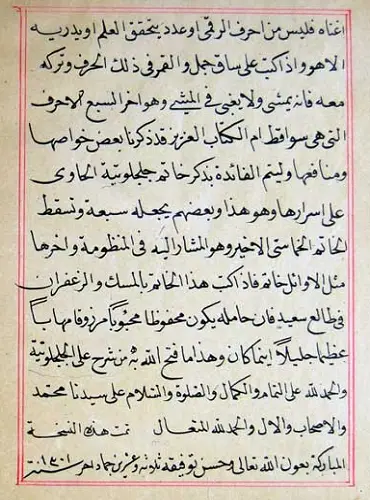 اغناه فليس من احرف الرقى او عدد يتحقق العلم او يدريه
الا هو واذا كتب على ساق جمل والقمر فى ذلك الحرف وتركه
معه فانه يمشى ولا يغى فى المشي وهو اخر السبع الاحرف
التى هى سواقط ام الكتاب العزيز قد ذكرنا بعض خواصها
ومنافعها وليتم الفائدة بذكر خاتم جلجلوتية الحاوى
على اسرارها وهو هذا وبعضهم يجعله سبعة وتسقط
الخاتم الخماسى الاخير وهو المشار اليه فى المنظومة واخرها
مثل الاوائل خاتم فاذا كتب هذا الخاتم بالمسك والزعفران
فى طالع سعيد فان حامله يكون محفوظا محبوبا مرزوقا مهاباً
عظيما جليلاً اينما كان وهذا ما فتح الله به من شرح على الجلجلوتية
والحمد لله على التمام والكمال والصلوة والسلام على سيدنا محمد
والاصحاب والال والحمد لله المتعال تمت هذه النسخة
المباركة بعون الله تعالى وحسن توفيقه ثلاثة وعشرين جماد اخر سنة ١٣٠١